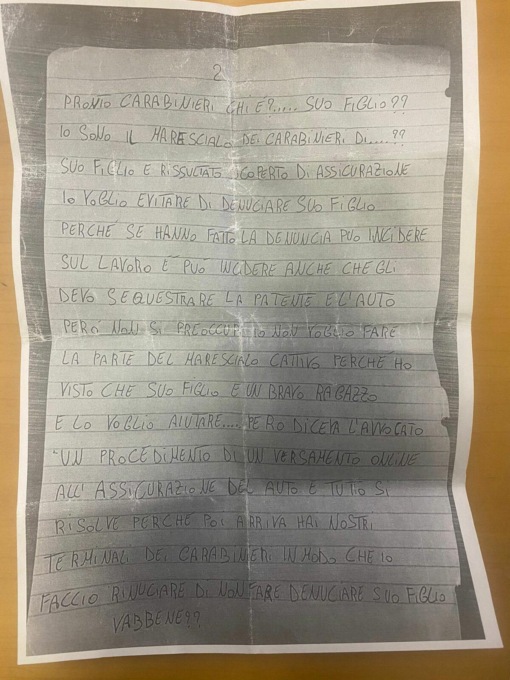 2
PRONTO CARABINIERI CHI È?..... SUO FIGLIO??
IO SONO IL MARESCIALO DEI CARABINIERI DI.....??
SUO FIGLIO E RISSULTATO SCOPERTO DI ASSICURAZIONE
IO VOGLIO EVITARE DI DENUCIARE SUO FIGLIO
PERCHÉ SE HANNO FATTO LA DENUNCIA PUO INCIDERE
SUL LAVORO E PUÓ INCIDERE ANCHE CHE GLI
DEVO SEQUESTRARE LA PATENTE E L'AUTO
PERÓ NON SI PREOCCUPI IO NON VOGLIO FARE
LA PARTE DEL MARESCIALO CATTIVO PERCHE HO
VISTO CHE SUO FIGLIO E UN BRAVO RAGAZZO
E LO VOGLIO AIUTARE.... PERO DICEVA L'AVVOCATO
"UN PROCEDIMENTO DI UN VERSAMENTO ONLINE
ALL'ASSICURAZIONE DEL AUTO E TUTTO SI
RISOLVE PERCHE POI ARRIVA HAI NOSTRI
TERMINALI DEI CARABINIERI IN MODO CHE IO
FACCIO RINUCIARE DI NON FARE DENUCIARE SUO FIGLIO
VABBENE??